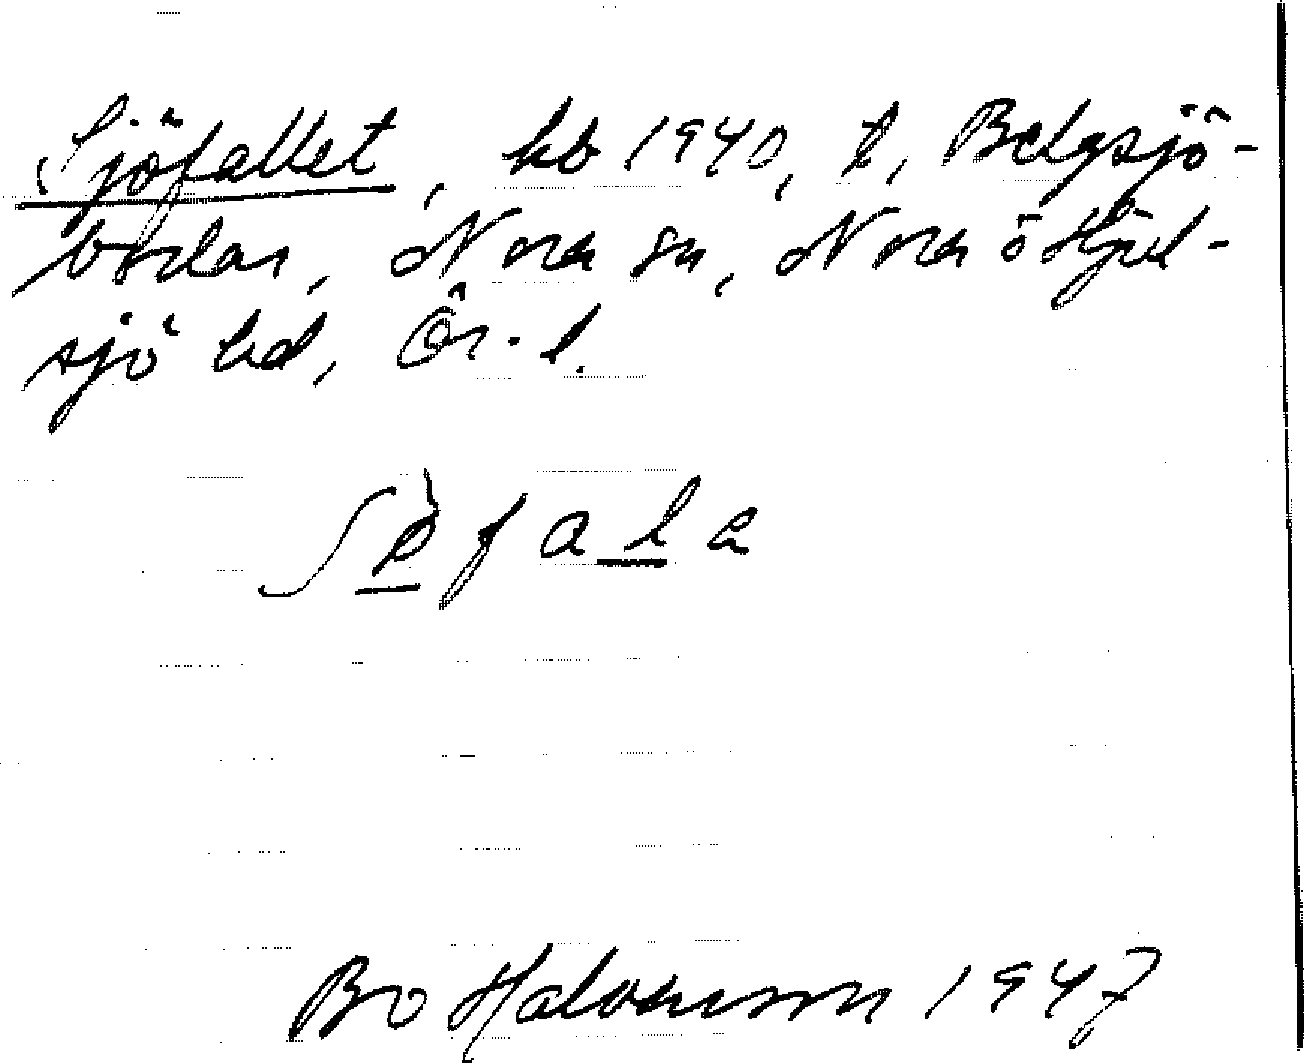 Sjöfallet, kb 1940, t, Belgsjö-
bodar, Nora sn, Nora ö Hjul-
sjö hd, Ör. l.
Bo Halvarsson 1947